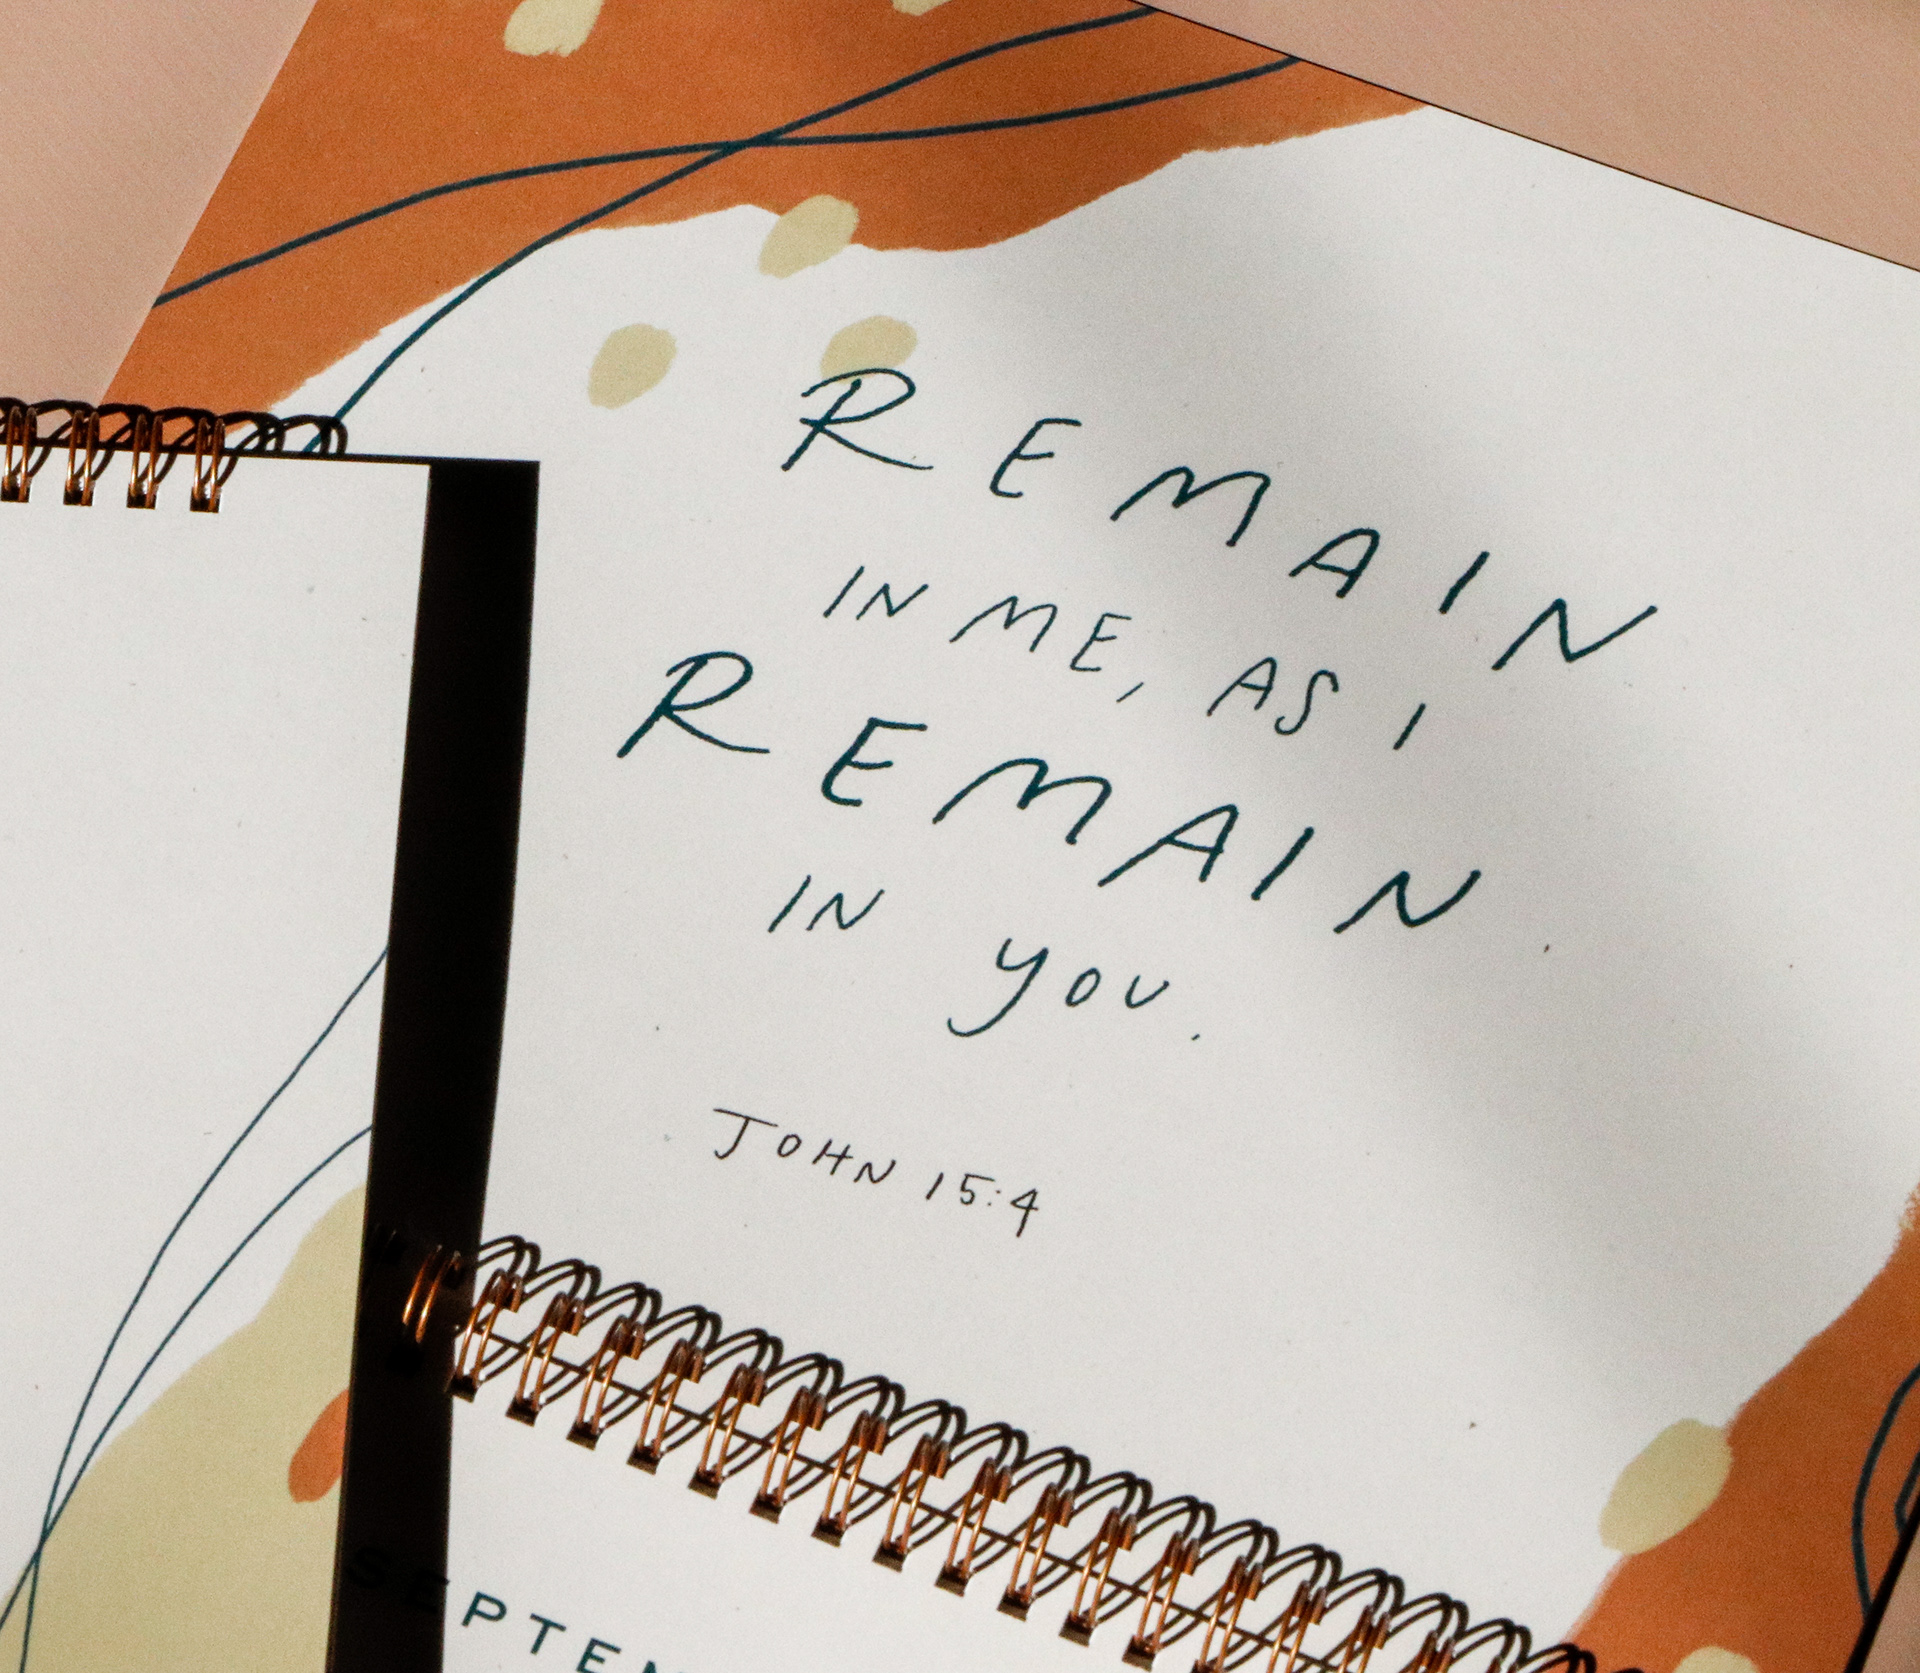 REMAIN
IN ME, AS I
REMAIN
IN YOU.
JOHN 15:4